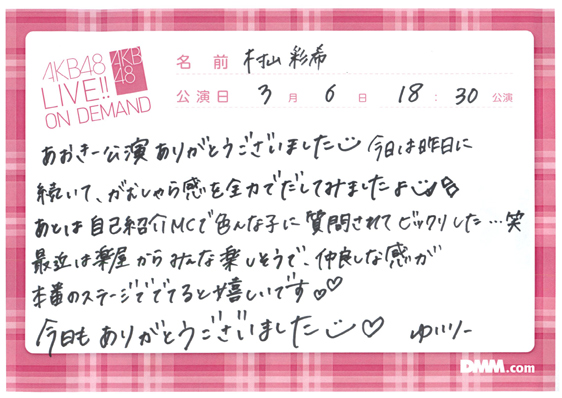 AKB48
LIVE!!
ON DEMAND
AKB
48
名前 村山彩希
公演日 3月6日 18:30公演
あおきー公演ありがとうございました 今日は昨日に
続いて、がむしゃら感を全力でだしてみましたよ
あとは自己紹介MCで色んな子に質問されてビックリした…笑
最近は楽屋からみんな楽しそうで、仲良しな感が
本番のステージででてると嬉しいです♡♡
今日もありがとうございました♡ ゆいりー
DMM.com